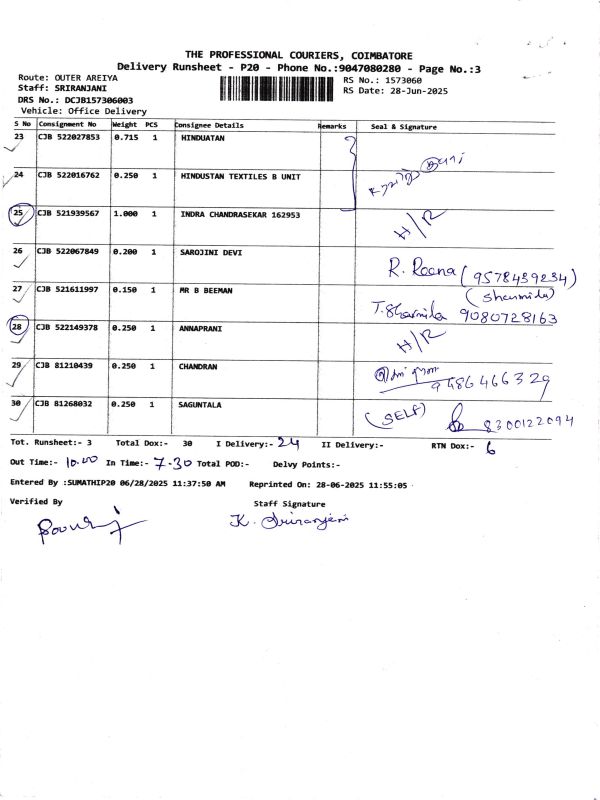 THE PROFESSIONAL COURIERS, COIMBATORE
Delivery Runsheet - P20 - Phone No.:9047080280 - Page No.:3
Route: OUTER AREIYA
RS No.: 1573060
Staff: SRIRANJANI
RS Date: 28-Jun-2025
DRS No.: DCJB157306003
Vehicle: Office Delivery
S No Consignment No Weight PCS Consignee Details Remarks Seal & Signature
23 CJB 522027853 0.715 1 HINDUATAN
24 CJB 522016762 0.250 1 HINDUSTAN TEXTILES B UNIT
25 CJB 521939567 1.000 1 INDRA CHANDRASEKAR 162953 H/R
26 CJB 522067849 0.200 1 SAROJINI DEVI R. Reena (9578459234)
27 CJB 521611997 0.150 1 MR B BEEMAN T. Sharmila 9080728163
28 CJB 522149378 0.250 1 ANNAPRANI H/R
29 CJB 81210439 0.250 1 CHANDRAN 9486466329
30 CJB 81268032 0.250 1 SAGUNTALA (SELF) 8300122094
Tot. Runsheet:- 3 Total Dox:- 30 I Delivery:- 24 II Delivery:- RTN Dox:- 6
Out Time:- 10.00 In Time:- 7.30 Total POD:- Delvy Points:-
Entered By :SUMATHIP20 06/28/2025 11:37:50 AM Reprinted On: 28-06-2025 11:55:05
Verified By Staff Signature
K. Sriranjani